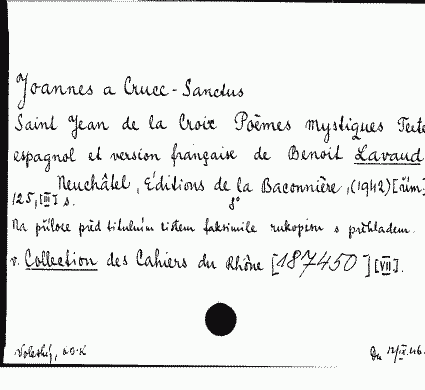 Joannes a Cruce - Sanctus
Saint Jean de la Croix Poèmes mystiques Texte
espagnol et version française de Benoit Lavaud
Neuchâtel, Éditions de la Baconnière, (1942) [řím]
125, [III] s. 8°
Na příloze před titulním listem faksimile rukopisu s překladem.
v. Collection des Cahiers du Rhône [187450] [VII].
Du 12/IX.46.